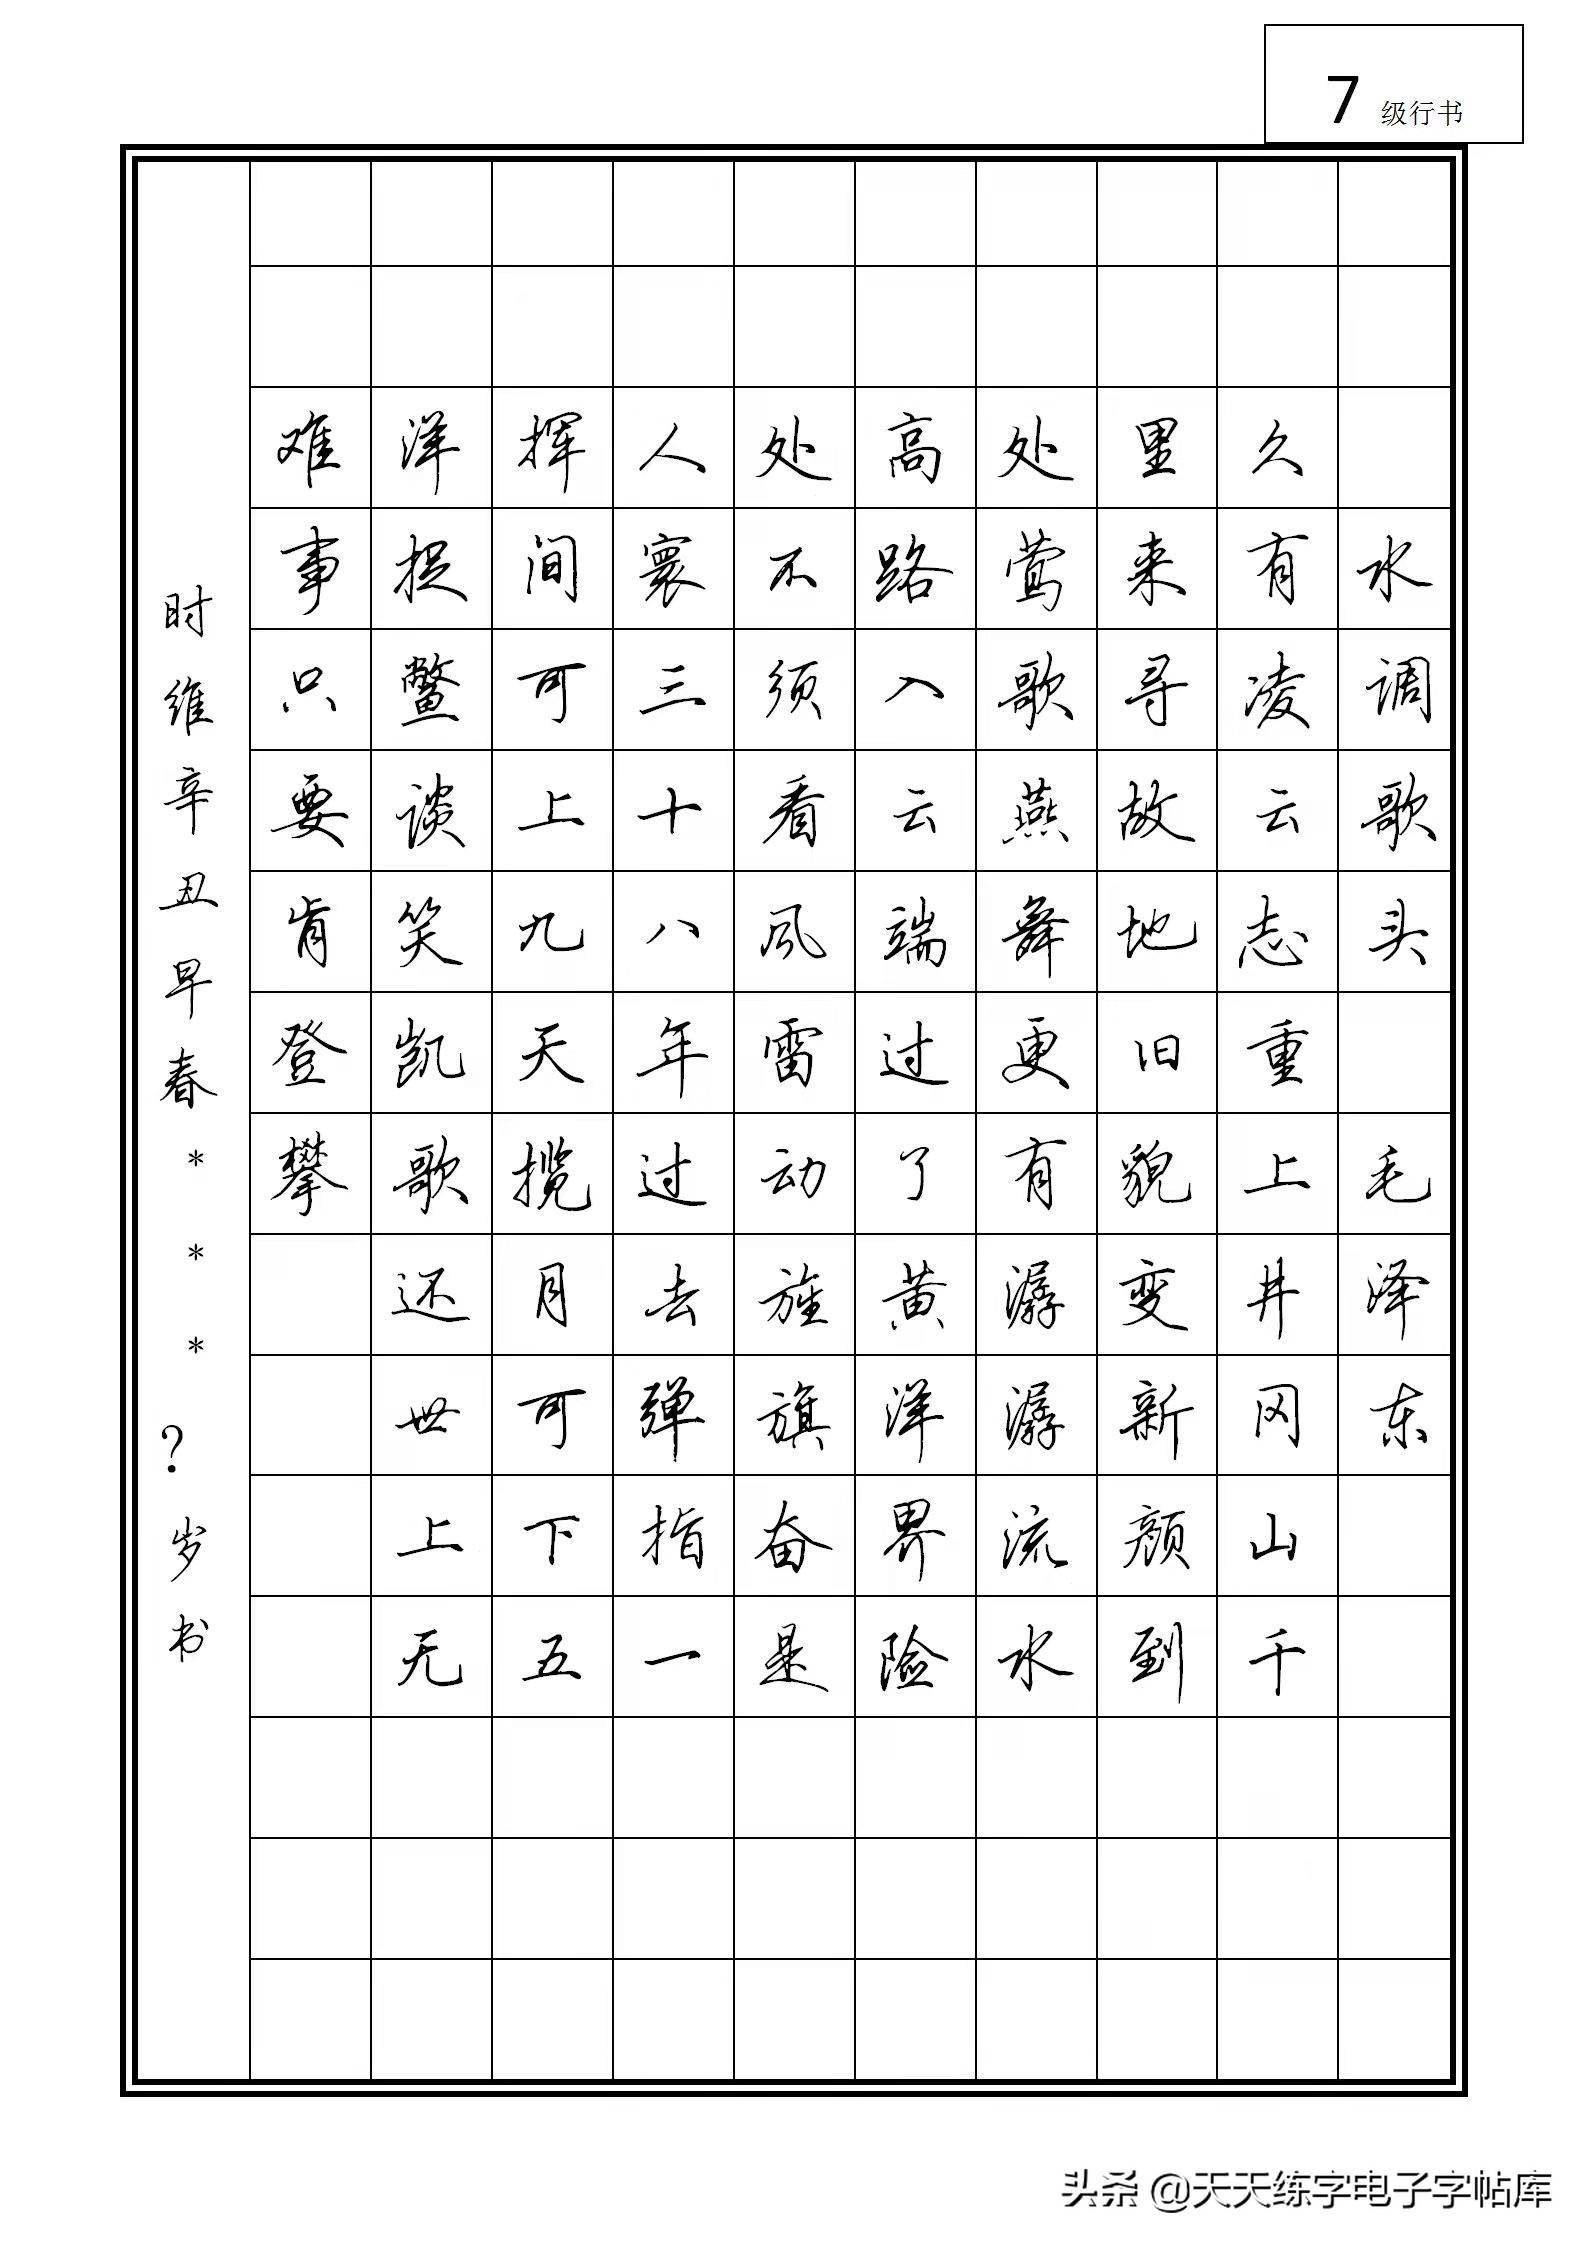 7 级行书
水调歌头 毛泽东
久有凌云志重上井冈山千
里来寻故地旧貌变新颜到
处莺歌燕舞更有潺潺流水
高路入云端过了黄洋界险
处不须看风雷动旌旗奋是
人寰三十八年过去弹指一
挥间可上九天揽月可下五
洋捉鳖谈笑凯歌还世上无
难事只要肯登攀
时维辛丑早春***?岁书
头条 @天天练字电子字帖库